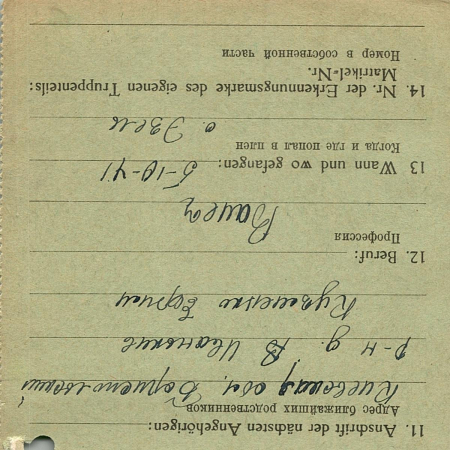 11. Anschrift der nächsten Angehörigen:
Адрес ближайших родственников
Киевская обл, Бориспольский
р-н д. В Иванькив
Кузьменко Ефрем
12. Beruf:
Профессия
13 Wann und wo gefangen: 5-10-41
Когда и где попал в плен
о. Эзель
14. Nr. der Erkennungsmarke des eigenen Truppenteils:
Matrikel=Nr.
Номер в собственной части